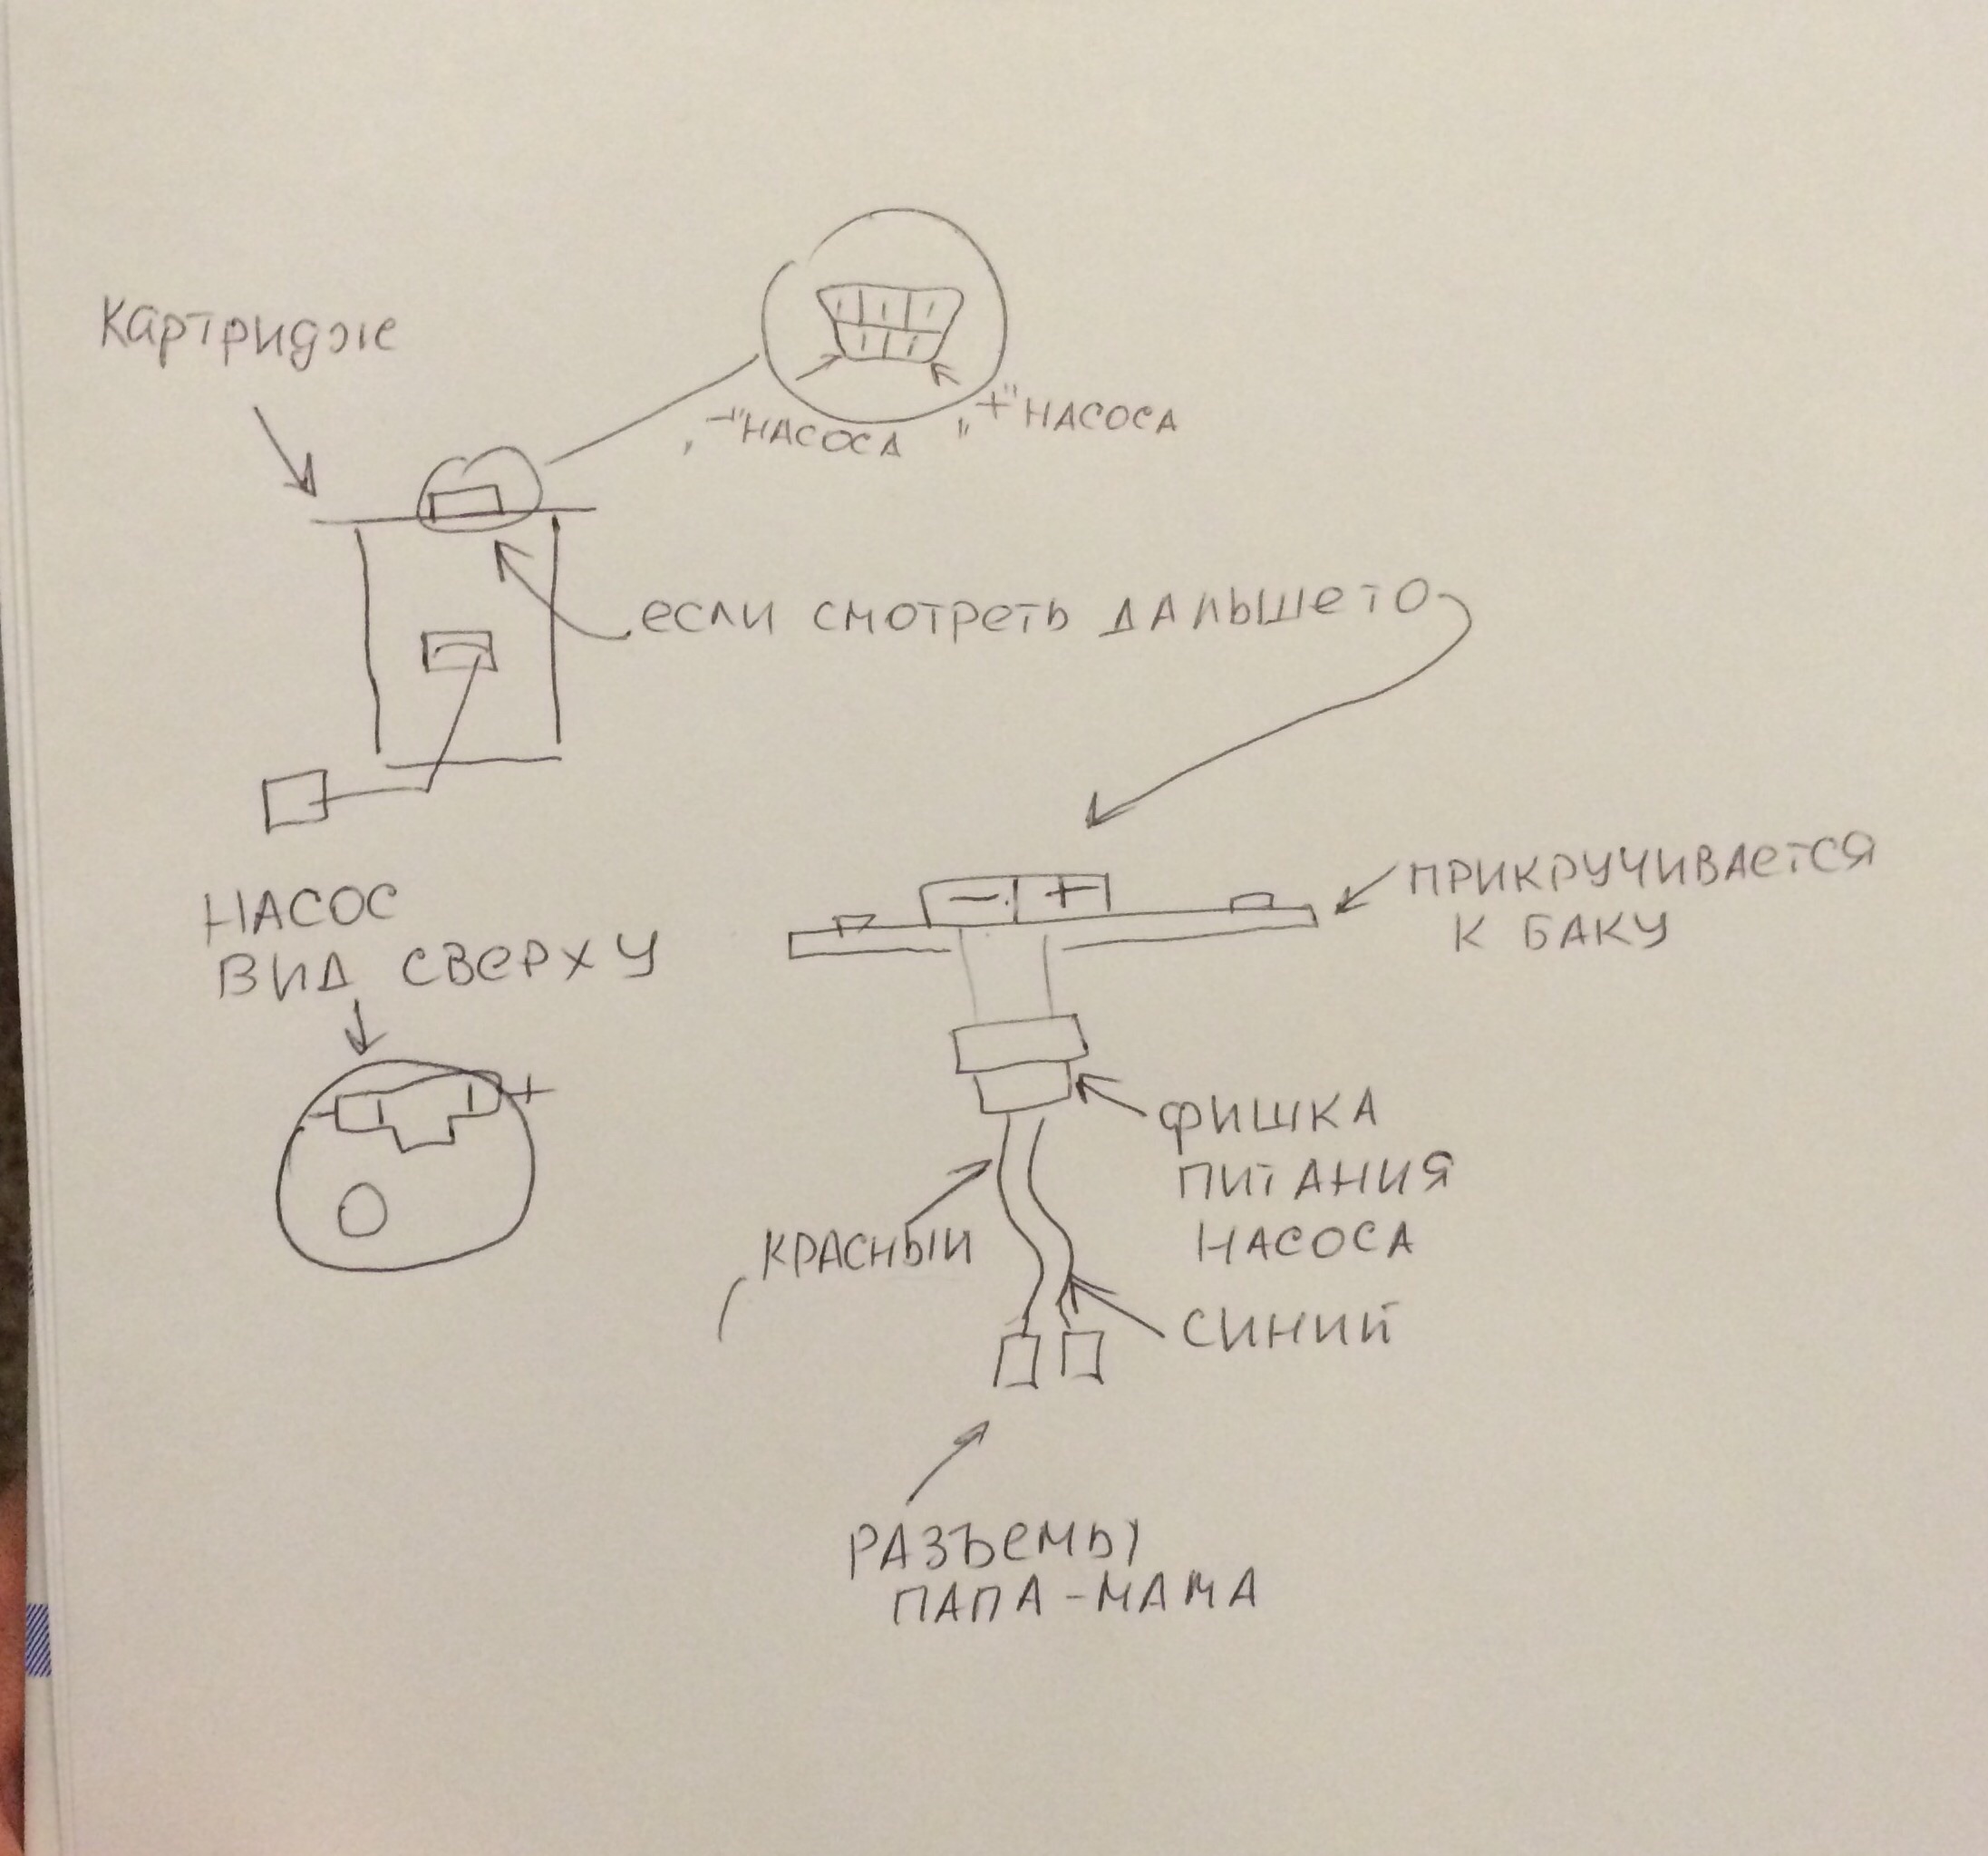 Картридж
„-"НАСОСА „+"НАСОСА
если смотреть дальше то
- +
ПРИКРУЧИВАЕТСЯ
К БАКУ
НАСОС
ВИД СВЕРХУ
- +
ФИШКА
ПИТАНИЯ
НАСОСА
КРАСНЫЙ
СИНИЙ
РАЗЪЕМЫ
ПАПА-МАМА